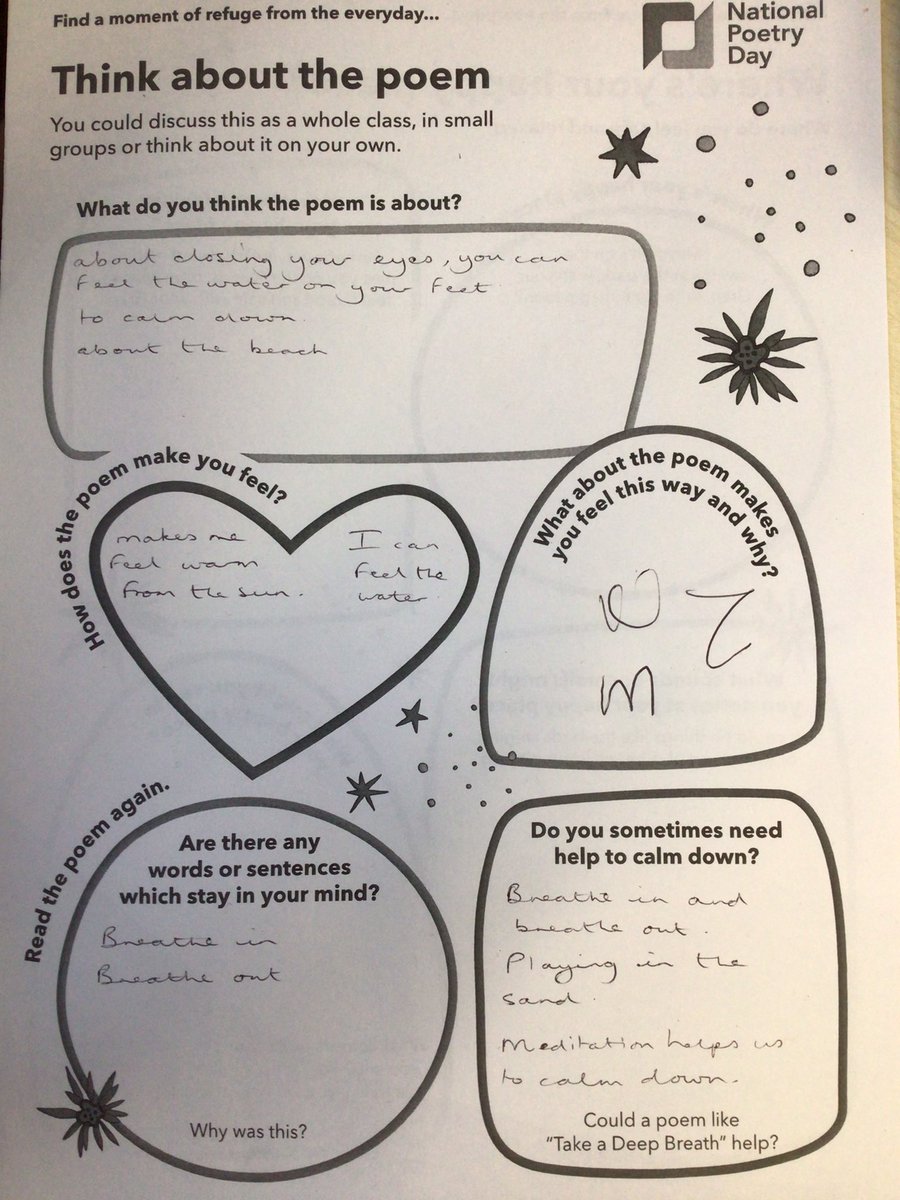 Find a moment of refuge from the everyday...
National
Poetry
Day
Think about the poem
You could discuss this as a whole class, in small
groups or think about it on your own.
What do you think the poem is about?
about closing your eyes, you can
feel the water on your feet
to calm down.
about the beach
How does the poem make you feel?
makes me
feel warm
from the sun.
I can
feel the
water.
What about the poem makes
you feel this way and why?
Read the poem again.
Are there any
words or sentences
which stay in your mind?
Breathe in
Breathe out
Why was this?
Do you sometimes need
help to calm down?
Breathe in and
breathe out.
Playing in the
sand.
Meditation helps us
to calm down.
Could a poem like
"Take a Deep Breath" help?